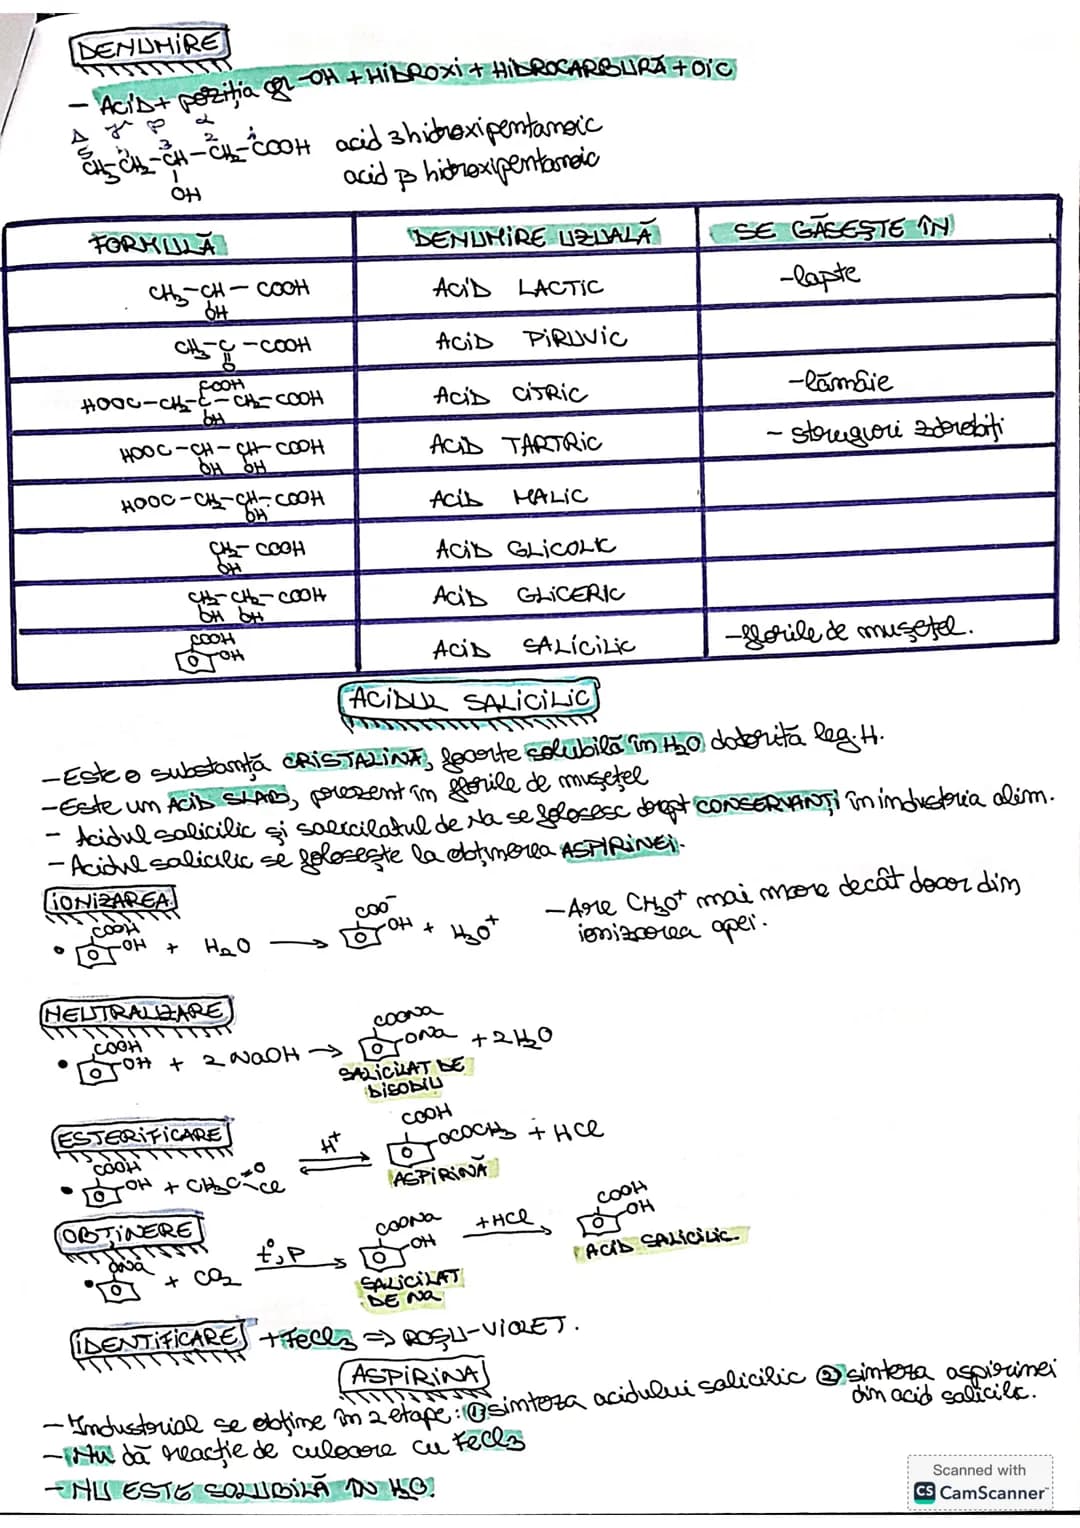 DENUMIRE
- Acid + poziția gr -OH + HIDROXI + HIDROCARBURĂ + OIC
Δ γ β α
5 4 3 2 1
CH₃-CH₂-CH-CH₂-COOH acid 3hidroxipentanoic
OH
acid β hidroxipentanoic
FORMULĂ DENUMIRE UZUALĂ SE GĂSEȘTE ÎN
CH₃-CH-COOH ACID LACTIC -lapte
OH
CH₃-C-COOH ACID PIRUVIC
O
COOH
HOOC-CH₂-C-CH₂-COOH ACID CITRIC -lămâie
OH
HOOC-CH-CH-COOH ACID TARTRIC - struguri zdrobiți
OH OH
HOOC-CH₂-CH-COOH ACID MALIC
OH
CH₂-COOH ACID GLICOLIC
OH
CH₂-CH₂-COOH ACID GLICERIC
OH OH
COOH
OH ACID SALICILIC -florile de mușețel.
ACIDUL SALICILIC
-Este o substanță CRISTALINĂ, foarte solubilă în H₂O datorită leg. H.
-Este un ACID SLAB, prezent în florile de mușețel
- Acidul salicilic și salicilatul de Na se folosesc drept CONSERVANȚI în industria alim.
- Acidul salicilic se folosește la obținerea ASPIRINEI.
IONIZAREA
COOH COO⁻
OH + H₂O → OH + H₃O⁺
-Are CH₃O⁺ mai mare decât doar din
ionizarea apei.
NEUTRALIZARE
COOH COONa
OH + 2 NaOH → ONa + 2H₂O
SALICILAT DE
DISODIU
ESTERIFICARE
COOH H⁺ COOH
OH + CH₃C=O Cl ⇌ OCOCH₃ + HCl
ASPIRINĂ
OBȚINERE
ONa + CO₂ t°, P → COONa OH +HCl → COOH OH
SALICILAT
DE Na
ACID SALICILIC.
IDENTIFICARE +FeCl₃ ⇒ ROȘU-VIOLET.
ASPIRINA
- Industrial se obține în 2 etape: ① sinteza acidului salicilic ② sinteza aspirinei
din acid salicilic.
- Nu dă reacție de culoare cu FeCl₃
- NU ESTE SOLUBILĂ ÎN H₂O!
Scanned with
CS CamScanner